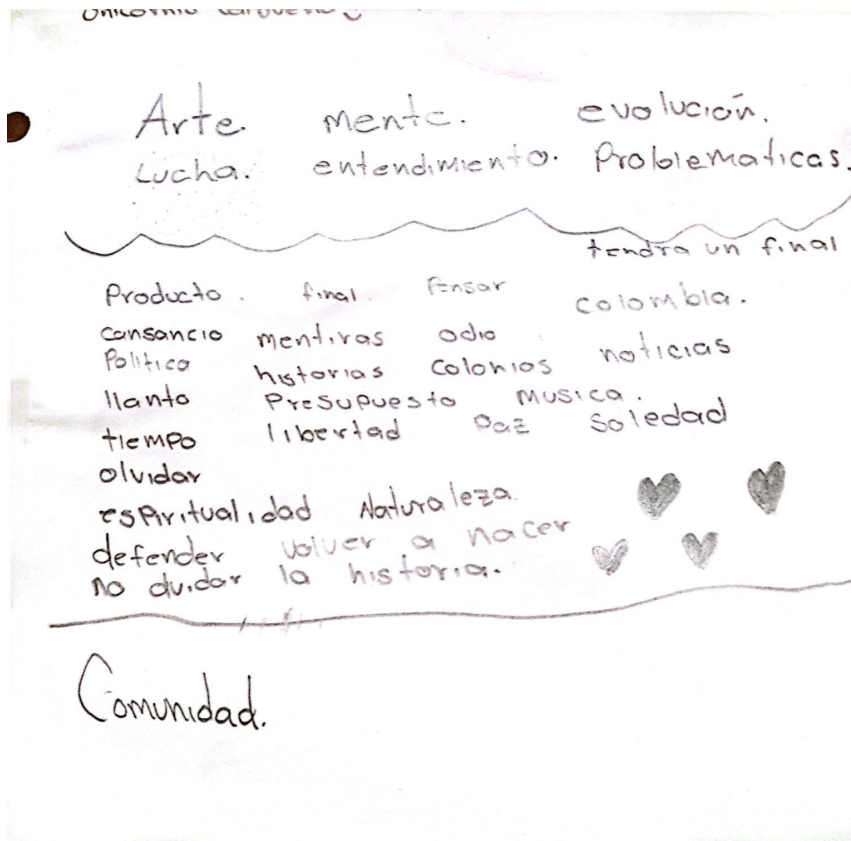 Arte. mente. evolución.
Lucha. entendimiento. Problematicas.
tendra un final
Producto. final. Pensar colombia.
cansancio mentiras odio
Politica historias colonios noticias
llanto Presupuesto musica.
tiempo libertad Paz Soledad
olvidar
espiritualidad Naturaleza.
defender volver a nacer
no olvidar la historia.
Comunidad.